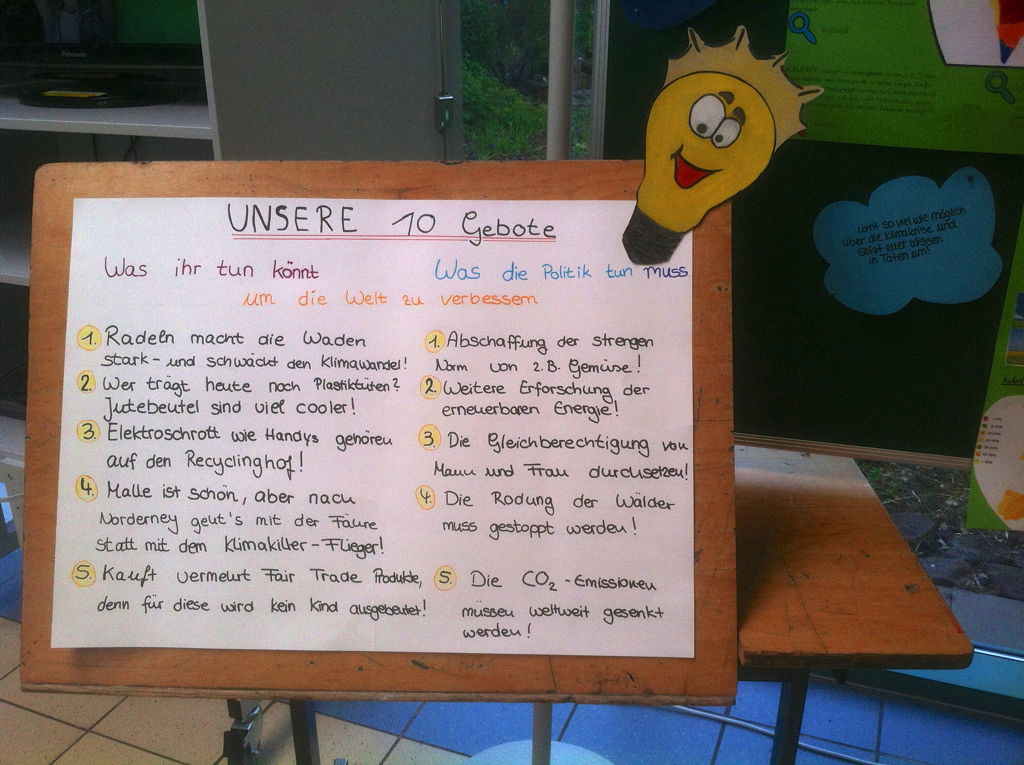 Panasonic
UNSERE 10 Gebote
Was ihr tun könnt
Was die Politik tun muss
um die Welt zu verbessern
1. Radeln macht die Waden
stark - und schwächt den Klimawandel!
2. Wer trägt heute noch Plastiktüten?
Jutebeutel sind viel cooler!
3. Elektroschrott wie Handys gehören
auf den Recyclinghof!
4. Malle ist schön, aber nach
Norderney geht's mit der Fähre
statt mit dem Klimakiller-Flieger!
5. Kauft vermehrt Fair Trade Produkte,
denn für diese wird kein Kind ausgebeutet!
1. Abschaffung der strengen
Norm von z.B. Gemüse!
2. Weitere Erforschung der
erneuerbaren Energie!
3. Die Gleichberechtigung von
Mann und Frau durchsetzen!
4. Die Rodung der Wälder
muss gestoppt werden!
5. Die CO₂-Emissionen
müssen weltweit gesenkt
werden!
Lernt so viel wie möglich
über die Klimakrise und
setzt euer Wissen
in Taten um!